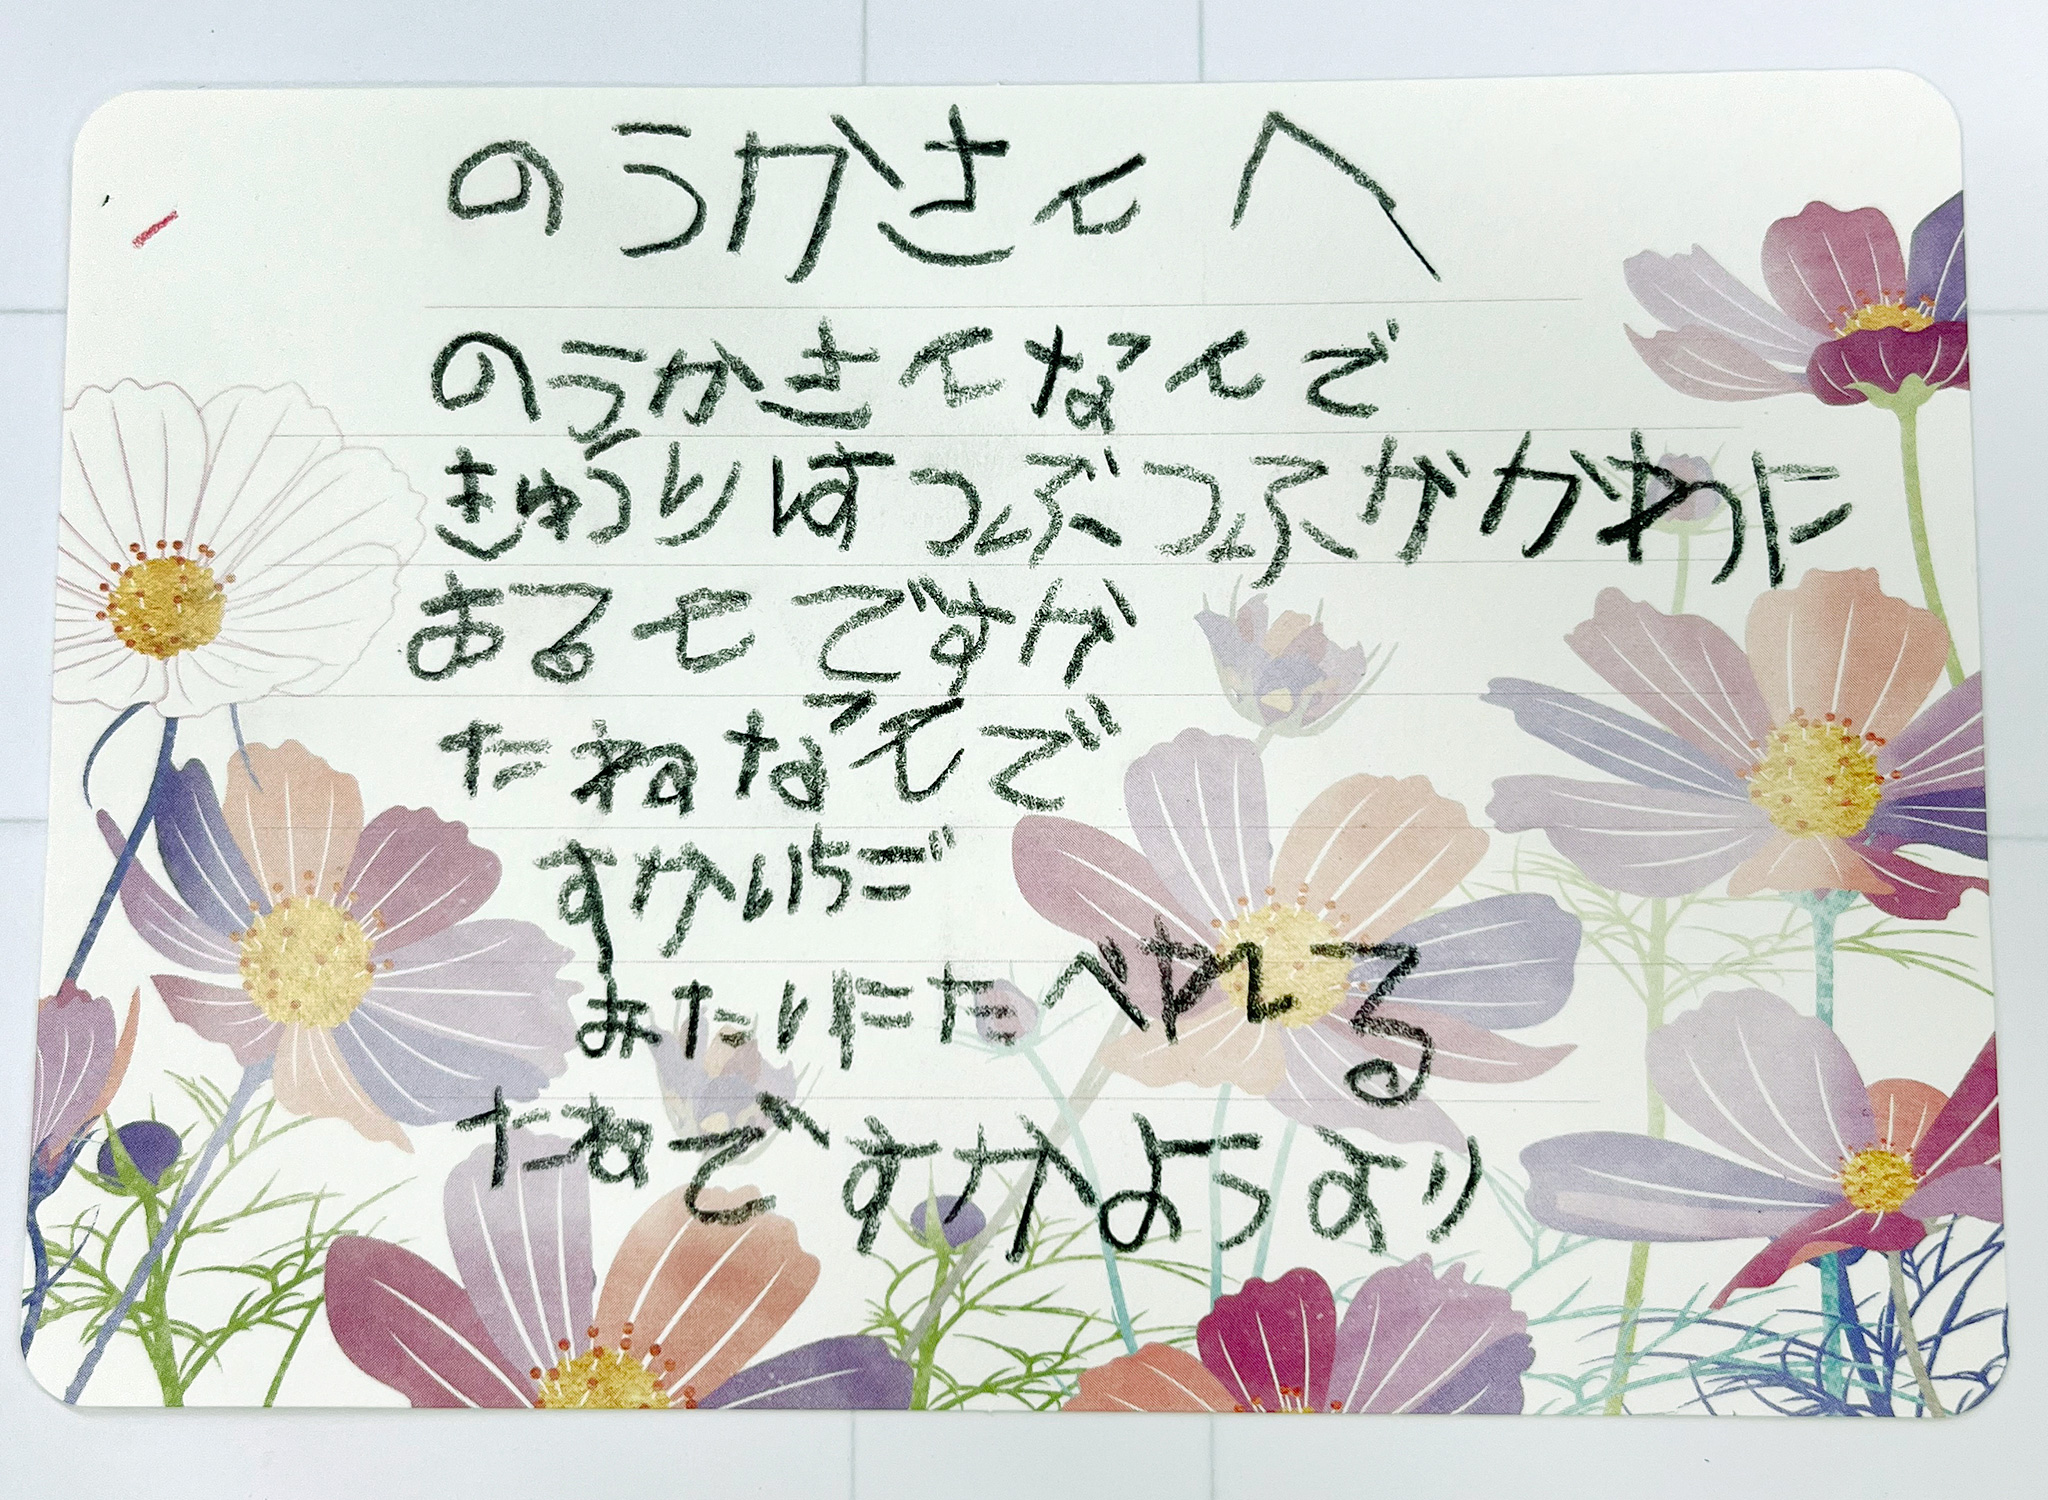 のうかさんへ
のうかさんなんで
きゅうりはつぶつふがかわに
あるんですか
たねなんで
すかいちご
みたいにたべれる
たねですか